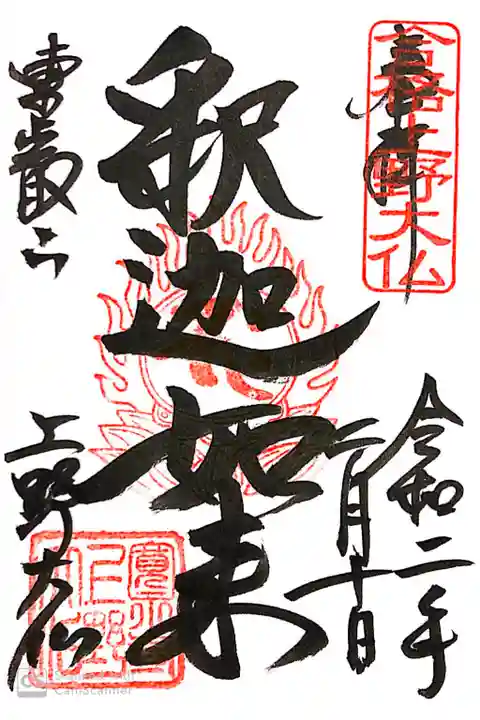 奉拝
合格上野大仏
令和二年
二月十日
釈迦如来
東叡山
上野大仏
CamScanner